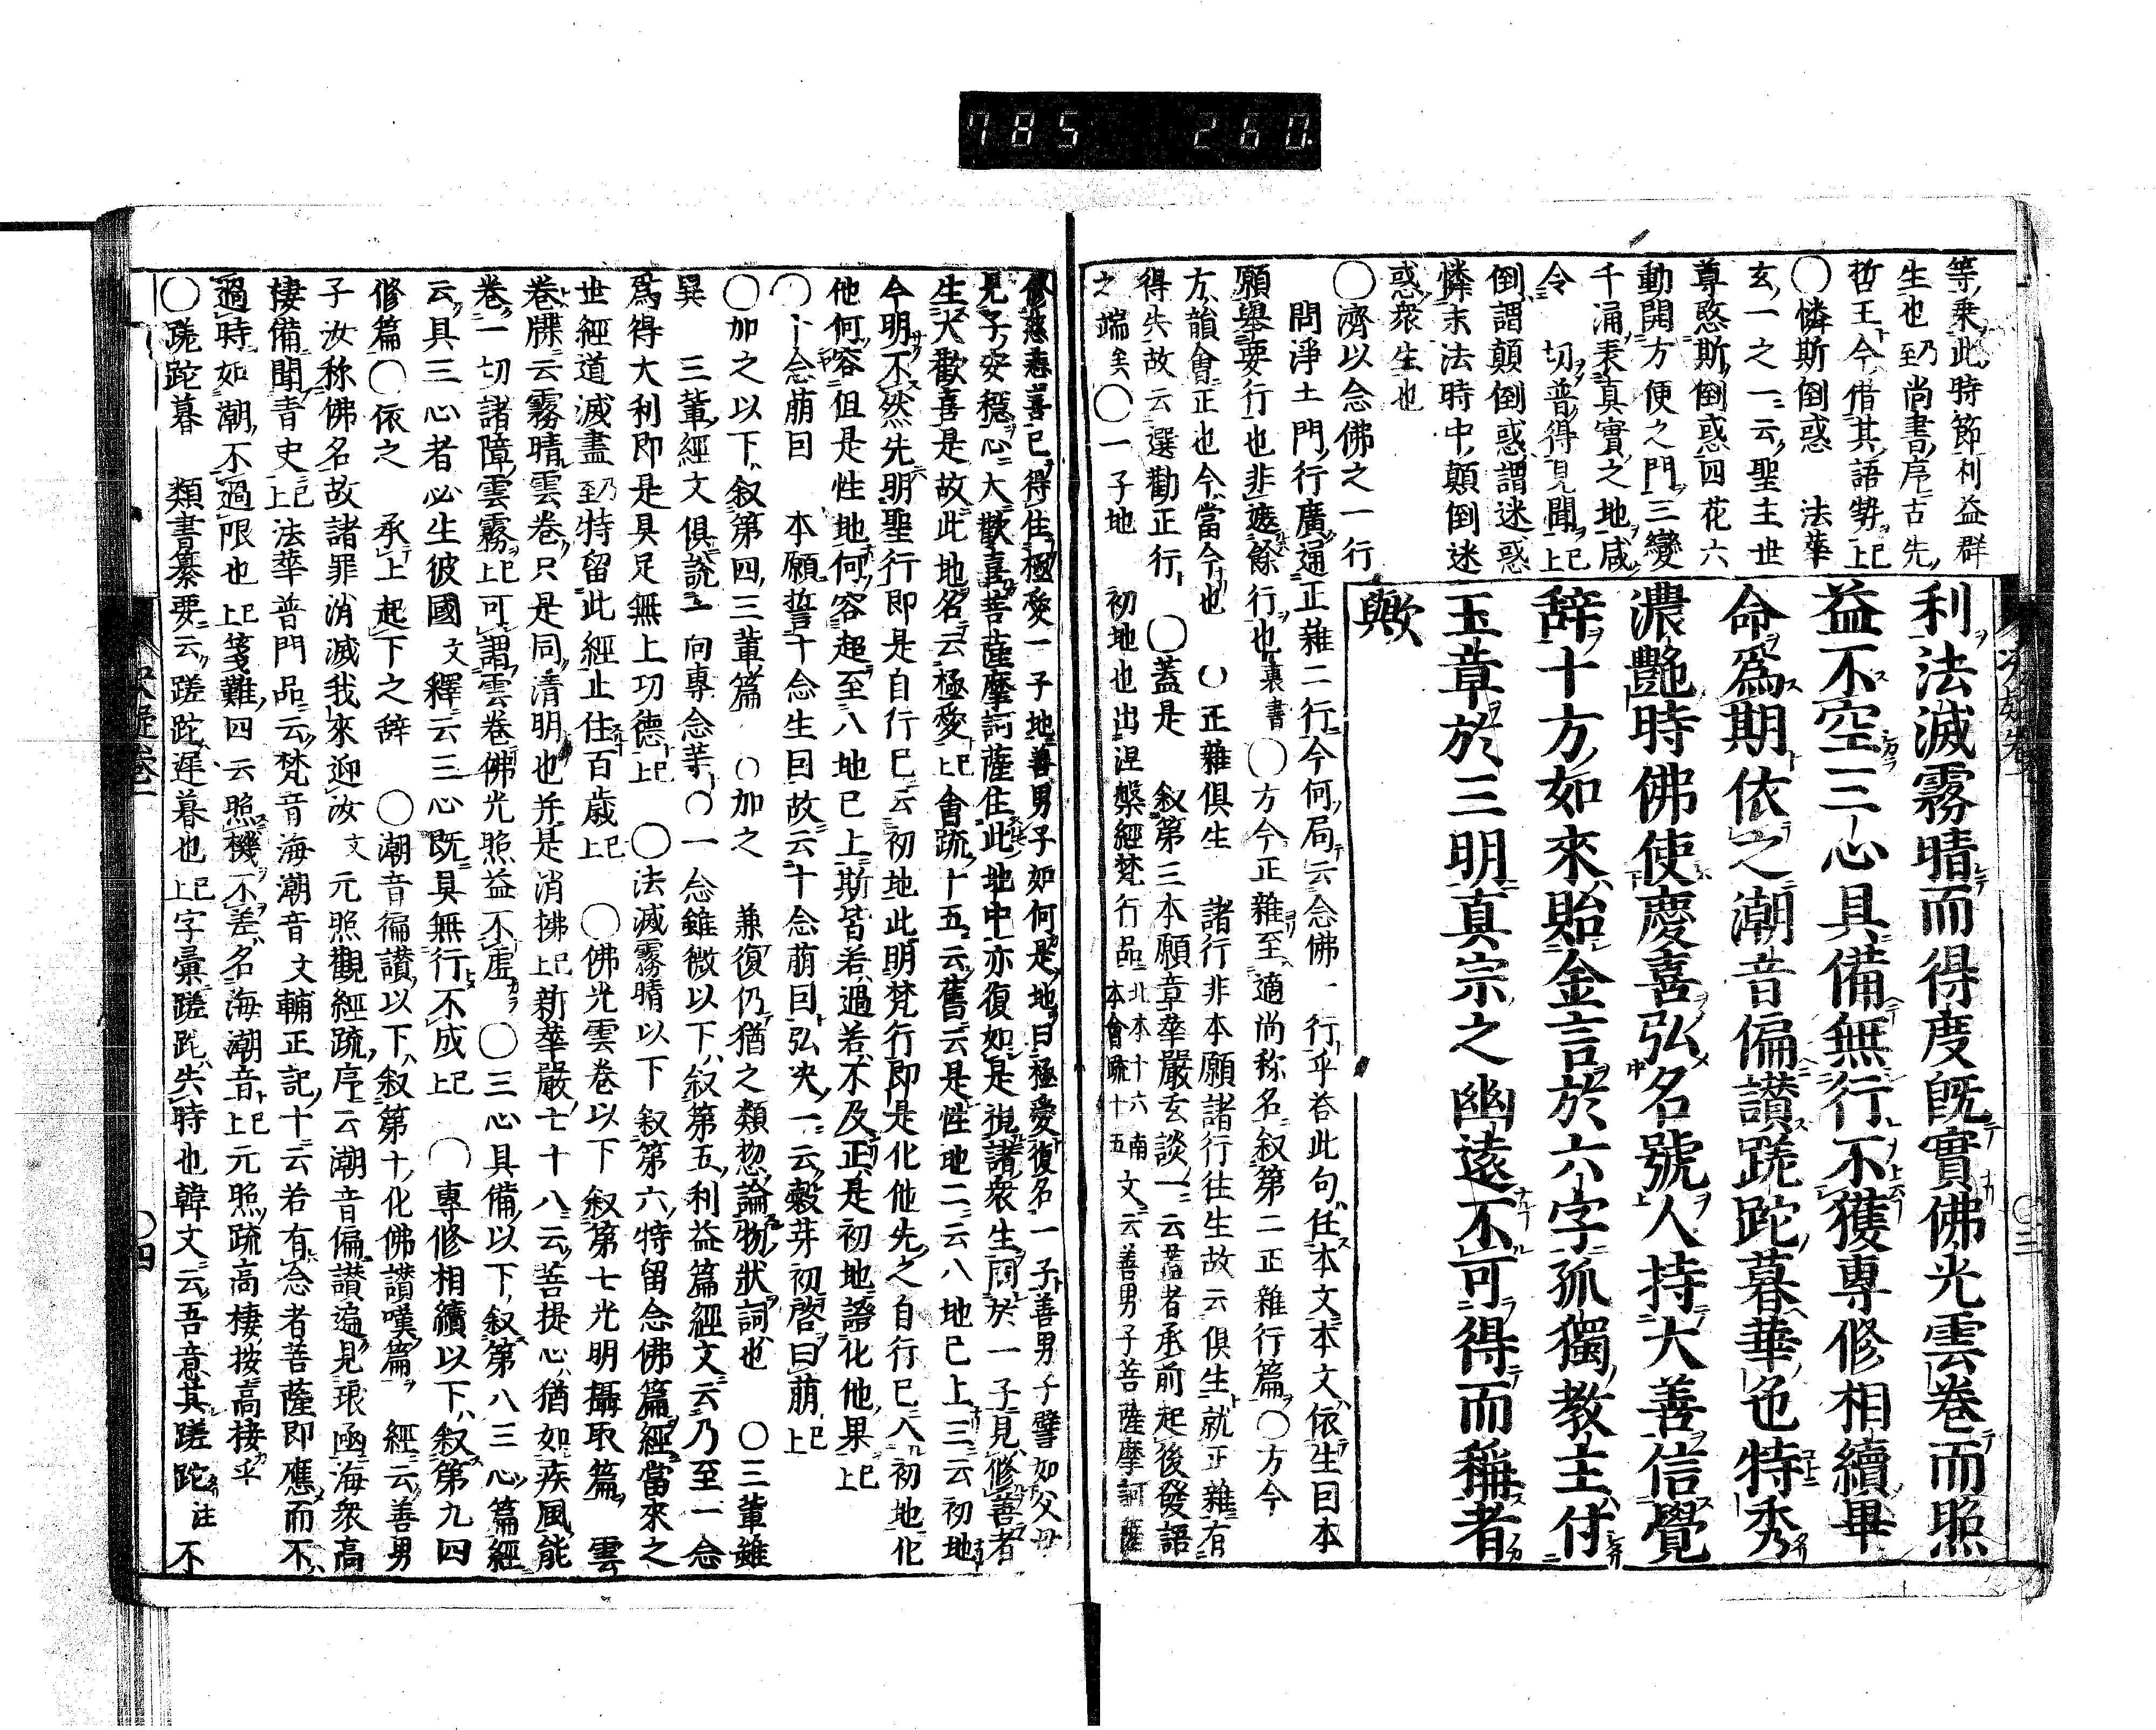 785 260
利法滅霧晴而得度既實佛光雲卷而照
益不空三心具備無行不獲專修相續畢
命爲期依之潮音偏讃蹉跎暮華也特秀
濃艶時佛使慶喜弘名號人持大善信覺
辞十方如來貽金言於六字孤獨教主付
玉章於三明真宗之幽遠不可得而稱者
歟
等乗此時節利益群
生也乃至尚書序古先
哲王今借其語勢已上
〇憐斯倒惑 法華
玄一之一云聖主世
尊愍斯倒惑四花六
動開方便之門三變
千涌表真實之地咸
令一切普得見聞已上
倒謂顛倒惑謂迷惑
憐末法時中顛倒迷
惑衆生也
〇濟以念佛之一行
問淨土門行廣通正雜二行今何局云念佛一行乎答此句任本文本文依生因本
願舉要行也非遮餘行也裏書〇方今正雜至適尚称名叙第二正雜行篇〇方今
方韻會正也今當今也 〇正雜俱生 諸行非本願諸行往生故云俱生就正雜有
得失故云選勸正行 〇蓋是 叙第三本願章華嚴玄談一云蓋者承前起後發語
之端矣〇一子地 初地也出涅槃經梵行品北本十六南本會疏十五文云善男子菩薩摩訶薩
修慈悲喜已得住極愛一子地善男子如何是地曰極愛復名一子善男子譬如父母
見子安穏心大歡喜菩薩摩訶薩住此地中亦復如是視諸衆生同於一子見修善者
生大歡喜是故此地名云極愛已上會疏十五云舊云是性地二云八地已上三云初地
今明不然先明聖行即是自行已云初地此明梵行即是化他先之自行已入初地化
他何容但是性地何容超至八地已上斯皆若過若不及正是初地語化他果已上
〇十念萠因 本願誓十念生因故云十念萠因弘决一云穀芽初啓曰萠已上
〇加之以下叙第四三輩篇 〇加之 兼復仍猶之類惣論物狀詞也 〇三輩雖
異 三輩經文俱說一向專念等〇一念雖微以下叙第五利益篇經文云乃至一念
爲得大利即是具足無上功德已上 〇法滅霧晴以下 叙第六特留念佛篇經當來之
世經道滅盡乃至特留此經止住百歳已上 〇佛光雲卷以下 叙第七光明攝取篇 雲
卷牒云霧晴雲卷只是同清明也并是消拂已上新華嚴七十八云菩提心猶如疾風能
卷一切諸障雲霧已上可謂雲卷佛光照益不虛 〇三心具備以下叙第八三心篇經
云具三心者必生彼國文釋云三心既具無行不成已上 〇專修相續以下叙第九四
修篇〇依之 承上起下之辞 〇潮音徧讃以下叙第十化佛讃嘆篇 經云善男
子汝称佛名故諸罪消滅我來迎汝文元照觀經疏序云潮音偏讃遍見琅函海衆高
棲備聞青史已上法華普門品云梵音海潮音文輔正記十云若有念者菩薩即應而不
過時如潮不過限也已上箋難四云照機不差名海潮音已上元照疏高棲按高棲乎
〇蹉跎暮 類書纂要云蹉跎遅暮也已上字彙蹉跎失時也韓文云吾意其蹉跎注不
〇四